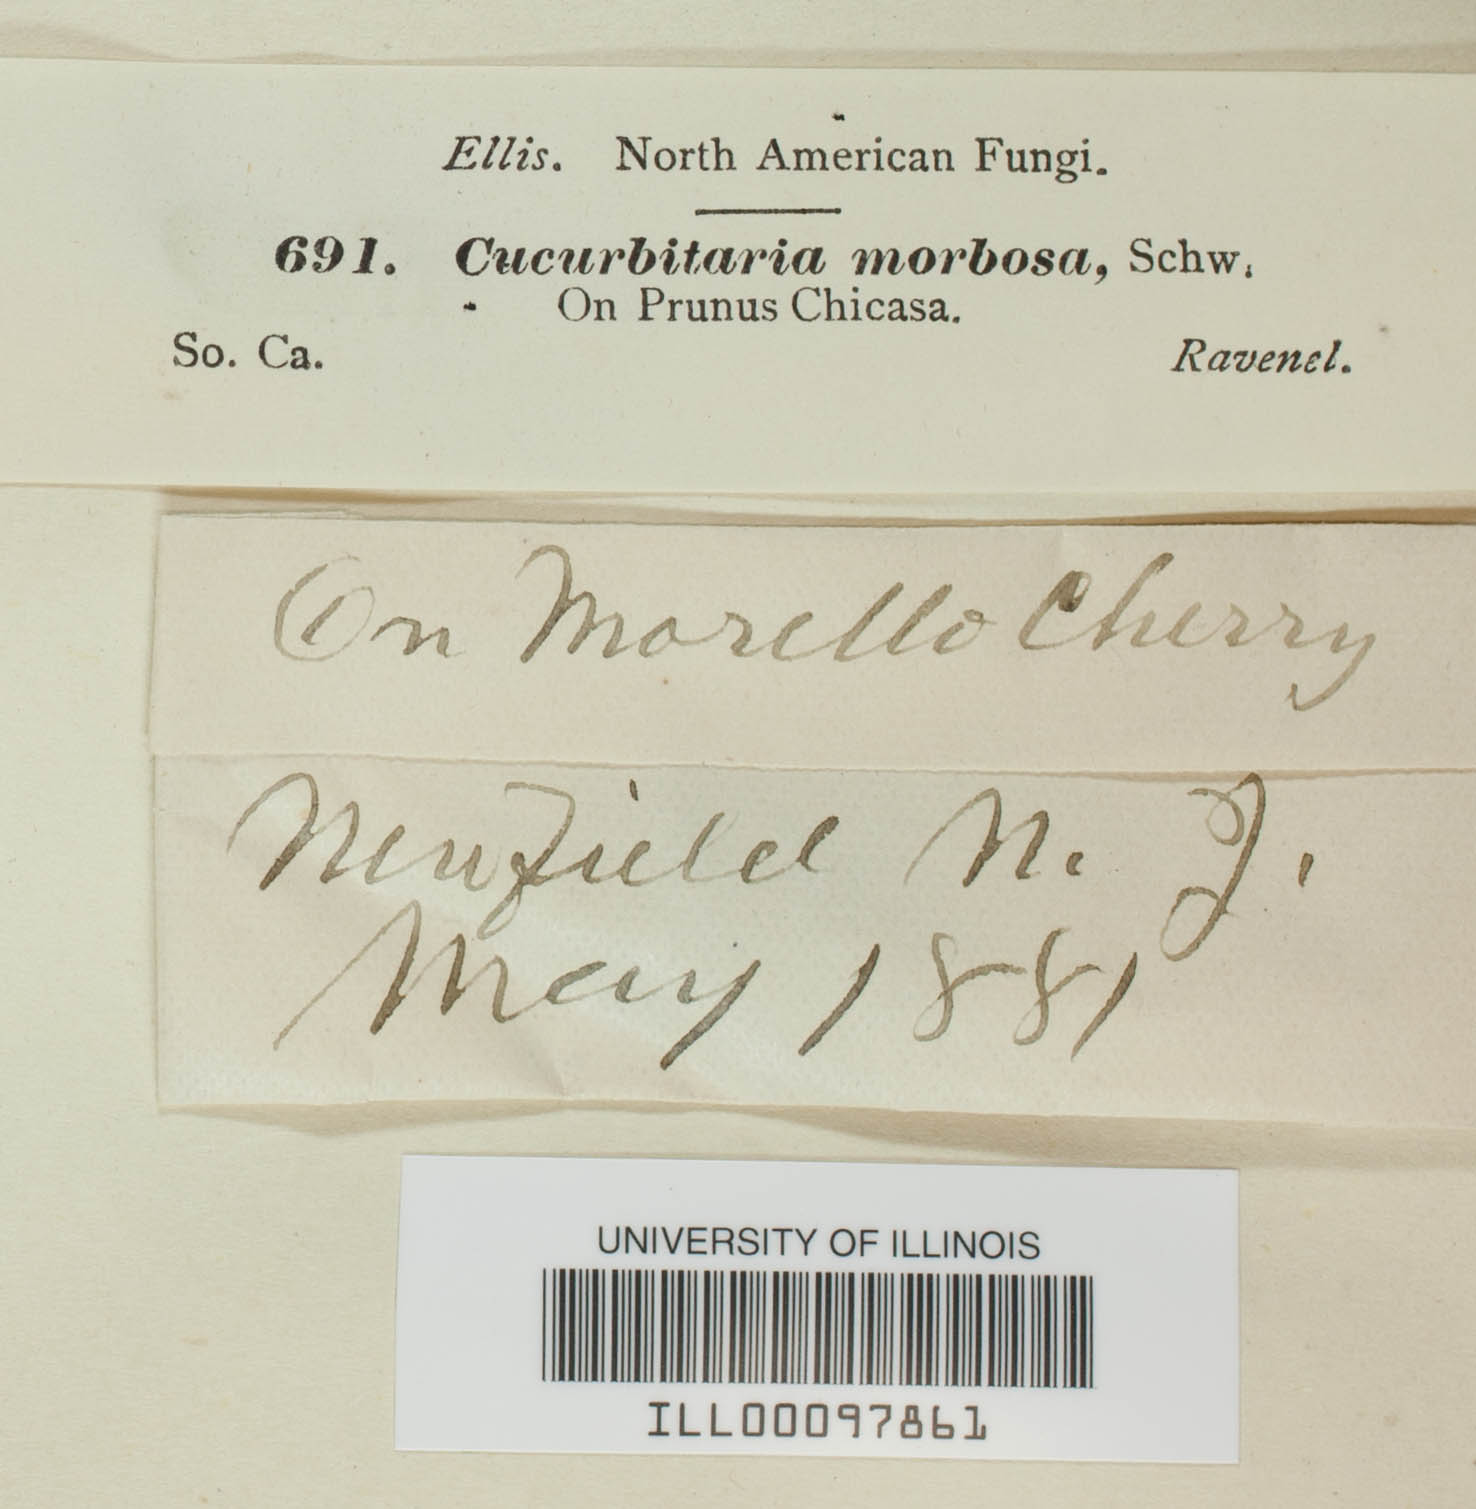 Ellis. North American Fungi.
691. Cucurbitaria morbosa, Schw.
On Prunus Chicasa.
So. Ca. Ravenel.
On Morello Cherry
Newfield N. J.
May 1881
UNIVERSITY OF ILLINOIS
ILL00097861